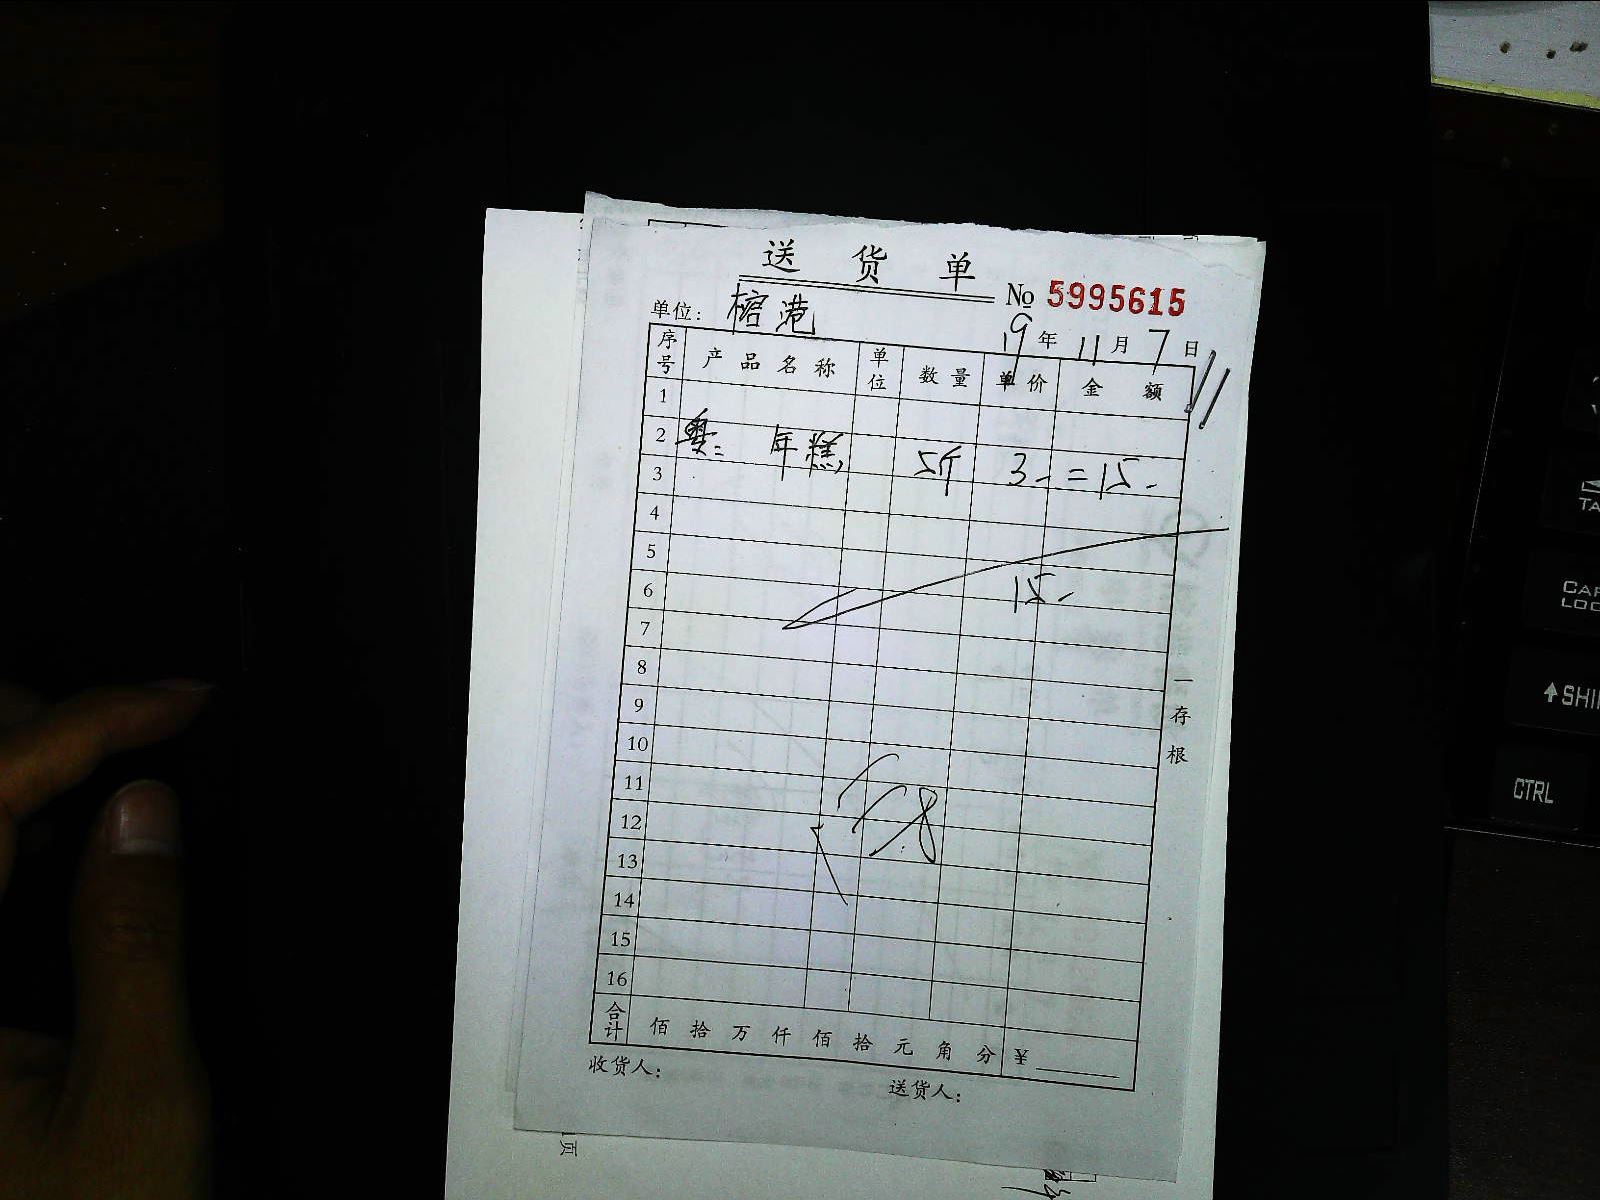 送 货 单
№ 5995615
单位: 榕港
19 年 11 月 7 日
序号 产品名称 单位 数量 单价 金额
1
2
年糕 5斤 3- =15-
3
4
5
6
15-
7
8
9
10
11
12
13
14
15
16
合计 佰 拾 万 仟 佰 拾 元 角 分 ¥
收货人:
送货人:
一存根
页
TA
CAP
LOC
SHI
CTRL